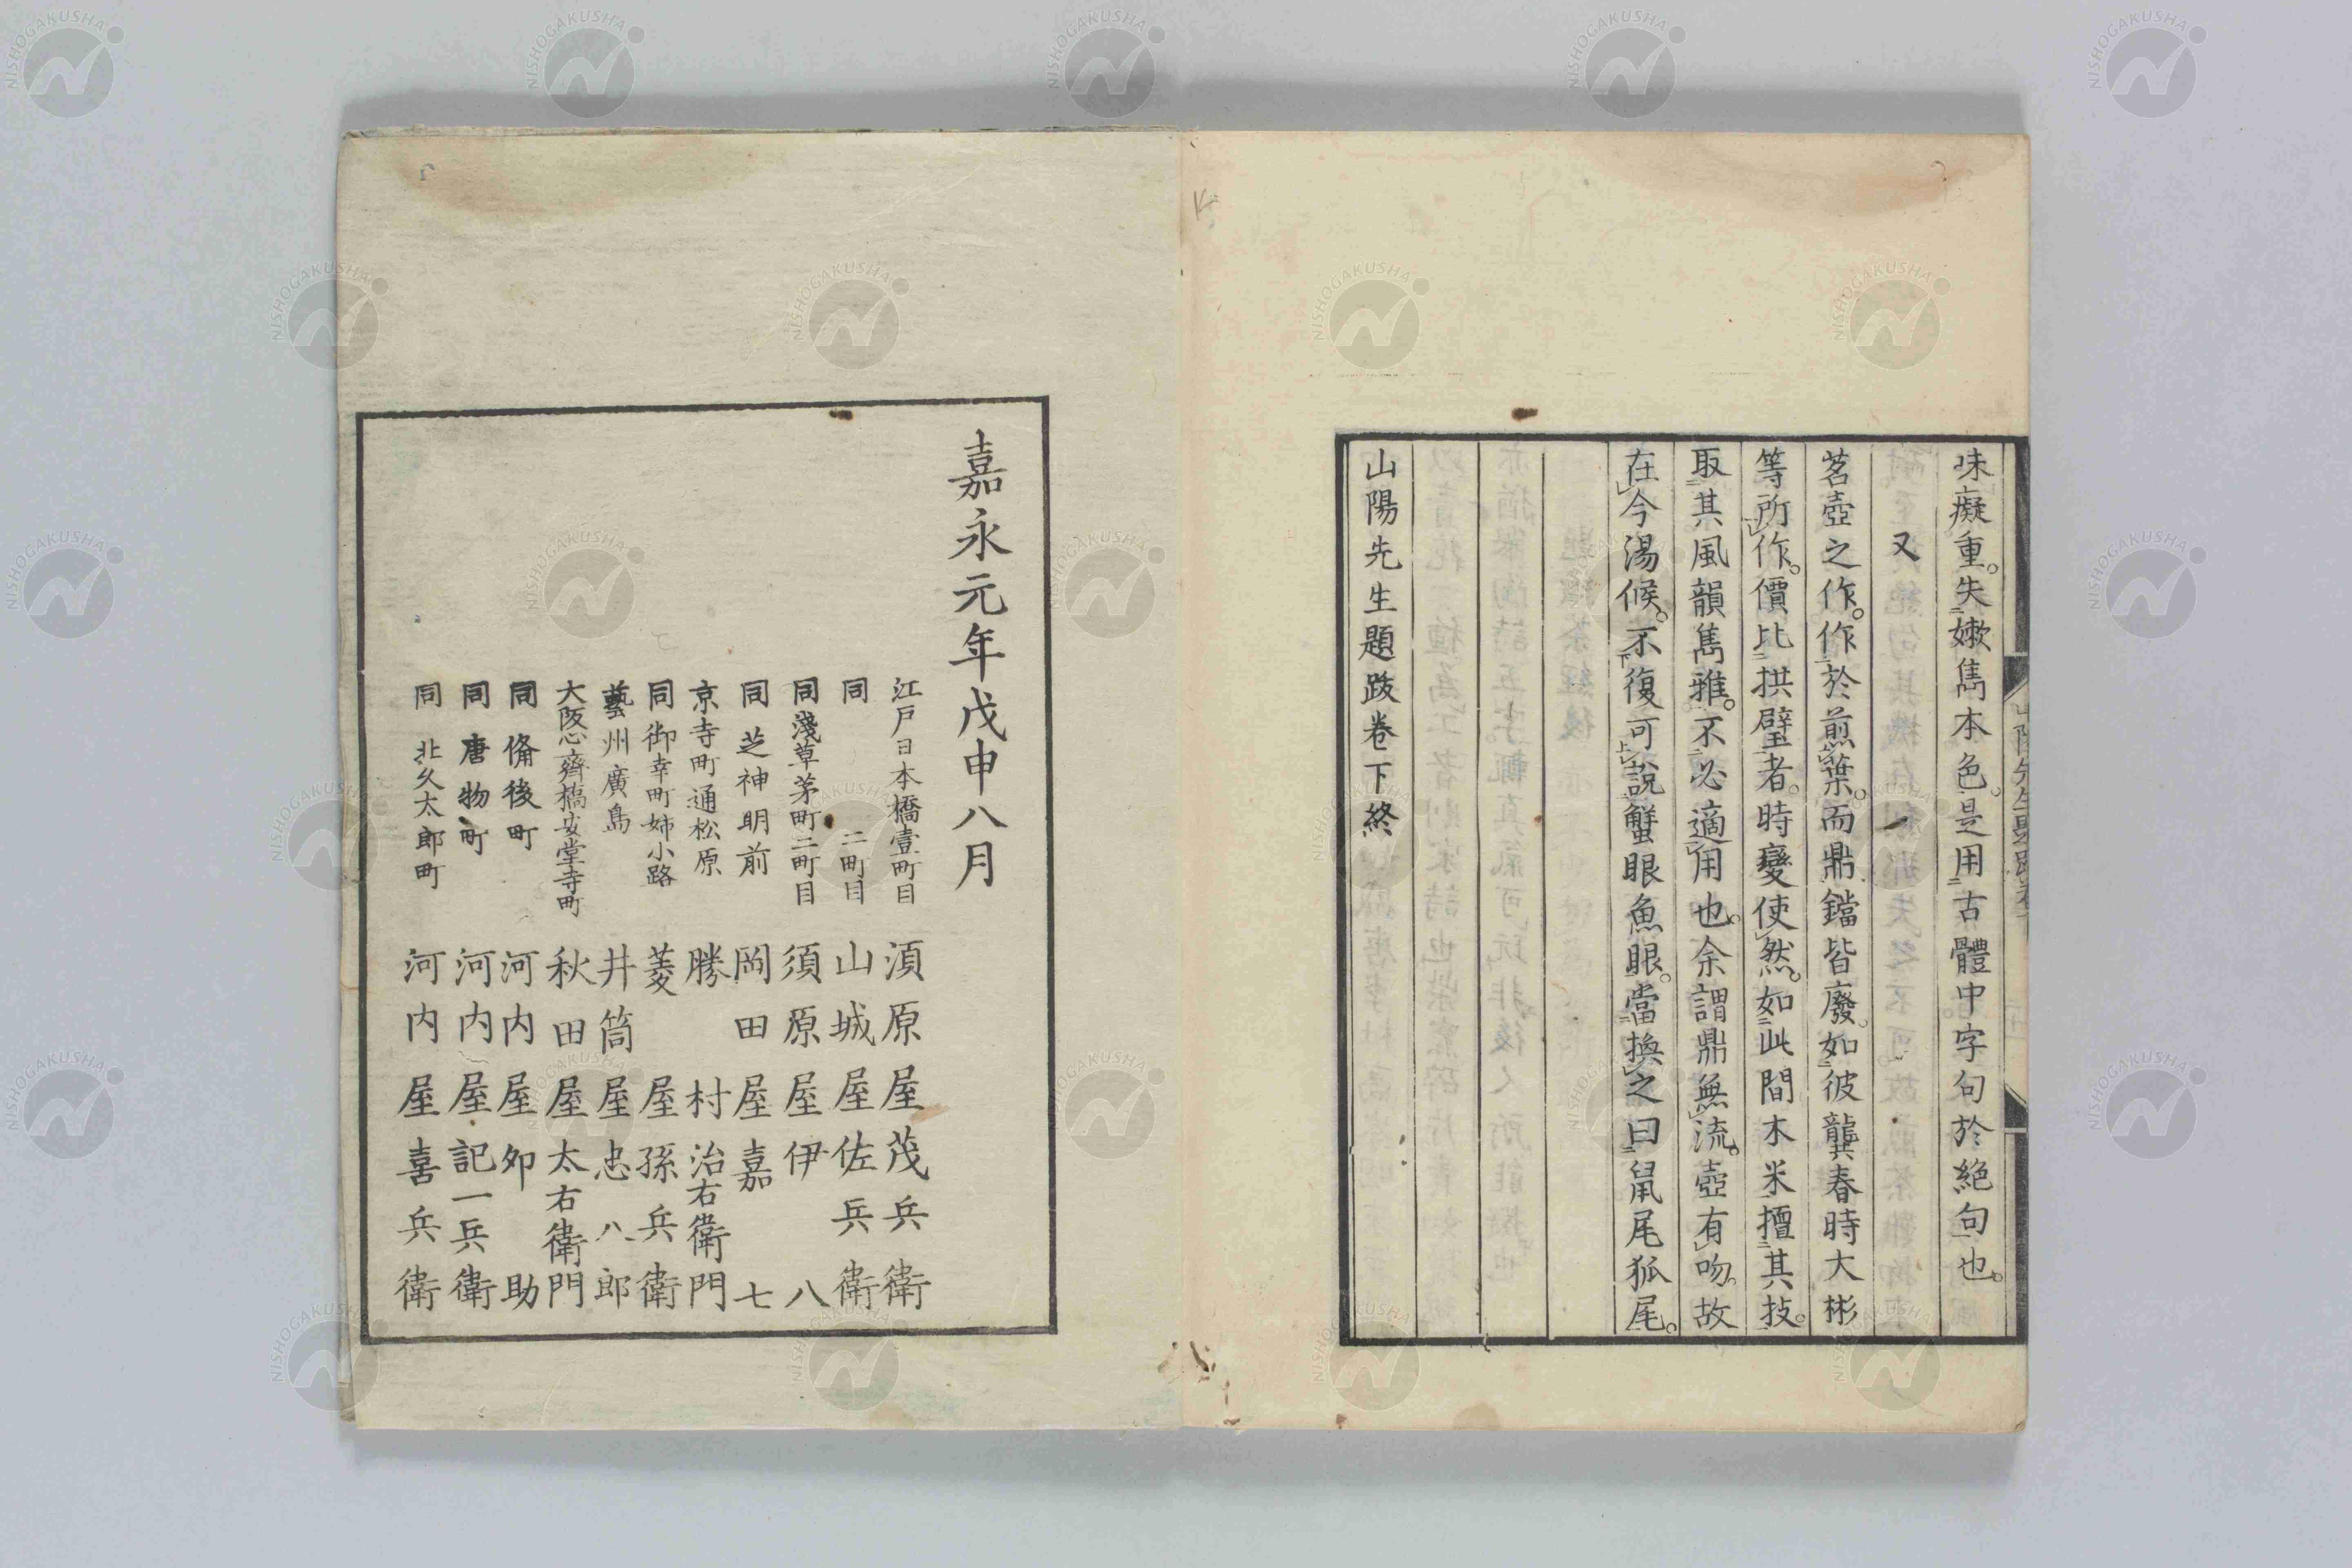 味癡重。失嫩雋本色。是用古體中字句於絕句也。
又
茗壺之作。作於煎葉。而鼎鐺皆廢。如彼龔春時大彬
等所作。價比拱璧者。時變使然。如此間木米擅其技。
取其風韻雋雅。不必適用也。余謂鼎無流。壺有吻。故
在今湯候。不復可說蟹眼魚眼。當換之曰鼠尾狐尾。
山陽先生題跋卷下終
嘉永元年戊申八月
江戸日本橋壹町目 須原屋茂兵衛
同 二町目 山城屋佐兵衛
同淺草茅町二町目 須原屋伊八
同芝神明前 岡田屋嘉七
京寺町通松原 勝村治右衛門
同御幸町姉小路 菱屋孫兵衛
藝州廣島 井筒屋忠八郎
大阪心齋橋安堂寺町 秋田屋太右衛門
同備後町 河内屋卯助
同唐物町 河内屋記一兵衛
同北久太郎町 河内屋喜兵衛
NISHOGAKUSHA